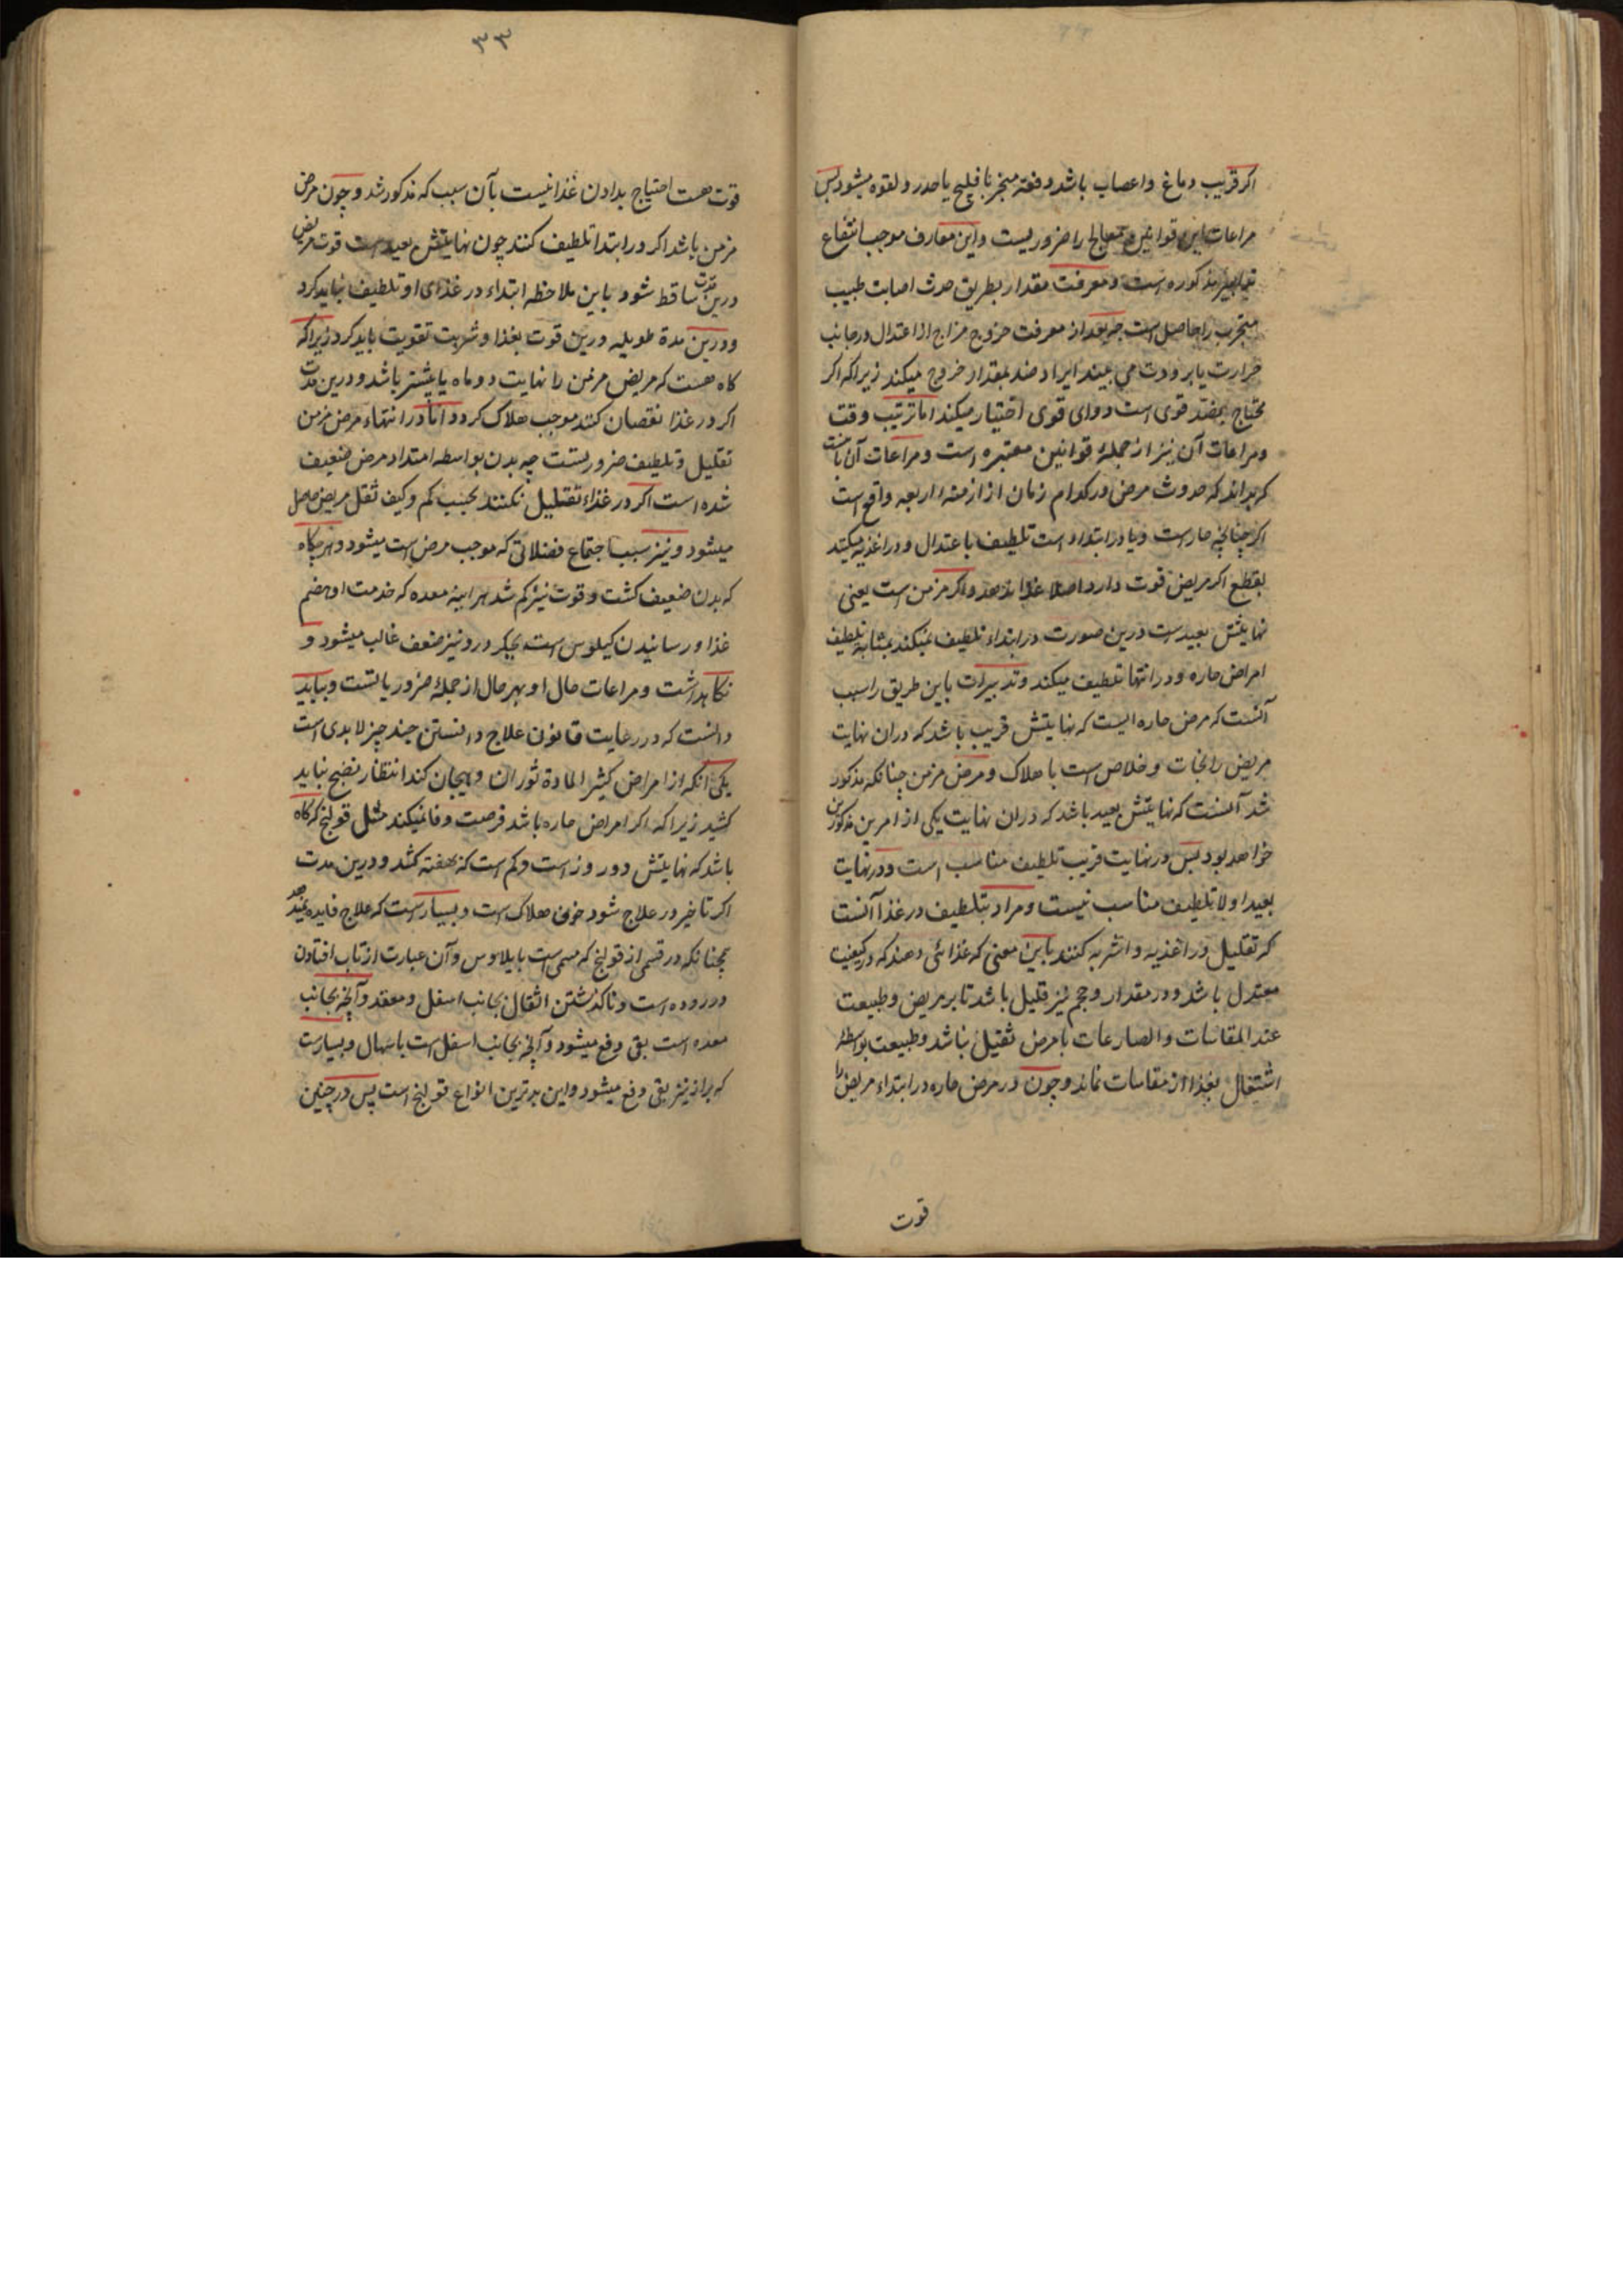 اکر قریب دماغ و اعصاب باشد دفعة منجر با فلیج یا خدر و لقوه میشود پس
مراعات این قوانین معالج را ضروریست و این معارف موجب انتفاع
مذکوره است و معرفت مقدار بطریق حدث اصابت طبیب
مجرب را حاصل است چه بعد از معرفت خروج مزاج از اعتدال در جانب
حرارت یا برودت می بیند ایراد ضد بمقدار خروج میکند زیرا که اکر
محتاج بضد قوی است دوای قوی اختیار میکند اما ترتیب وقت
و مراعات آن نیز از جملۀ قوانین معتبره است و مراعات آن
که بداند که حدوث مرض در کدام زمان از ازمنه اربعه واقع است
اکر چنانچه حارست و یا در ابتداء است تلطیف باعتدال و در اغذیه میکند
بقطع اکر مریض قوت دارد اصلا غذا ندهد و اکر مزمن است یعنی
نهایتش بعیدست درین صورت در ابتداء تلطیف نمیکند بمثابه تلطیف
امراض حاره و در انتها تلطیف میکند و تدبیرات باین طریق را سبب
آنست که مرض حاره ایست که نهایتش قریب باشد که دران نهایت
مریض را نجات و خلاص است یا هلاک و مرض مزمن چنانکه مذکور
شد آنست که نهایتش بعید باشد که دران نهایت یکی از امرین مذکورین
خواهد بود پس در نهایت قریب تلطیف مناسب است و در نهایت
بعید اولا تلطیف مناسب نیست و مراد بتلطیف در غذا آنست
که تقلیل در اغذیه و اشربه کنند باین معنی که غذائی دهند که در کیفیت
معتدل باشد و در مقدار و حجم نیز قلیل باشد تا بر مریض و طبیعت
عند المقاسات و المصارعات با مرض ثقیل نباشد و طبیعت بواسطۀ
اشتغال بغذا از مقاسات نماند و چون در مرض حاره در ابتداء مریض را
قوت
۳۳
قوت هست احتیاج بدادن غذا نیست بآن سبب که مذکور شد و چون مرض
مزمن باشد اکر در ابتدا تلطیف کنند چون نهایتش بعید است قوت مریض
درین مدت ساقط شود باین ملاحظه ابتداء در غذای او تلطیف نباید کرد
و درین مدة طویله درین قوت بغذا و شربت تقویت باید کرد زیرا که
کاه هست که مریض مزمن را نهایت دو ماه یا بیشتر باشد و درین مدت
اکر در غذا نقصان کنند موجب هلاک کردد اما در انتهاء مرض مزمن
تقلیل و تلطیف ضروریست چه بدن بواسطه امتداد مرض ضعیف
شده است اکر در غذاء تقلیل نکنند بحسب کم و کیف ثقل مریض حاصل
میشود و نیز سبب اجتماع فضلاتی که موجب مرض است میشود و هر کاه
که بدن ضعیف کشت و قوت نیز کم شد هر اینه معده که خدمت او هضم
غذا و رسانیدن کیلوس است بجکر درو نیز ضعف غالب میشود و
نکاهداشت و مراعات حال او بهر حال از جملۀ ضروریاتست و بباید
دانست که در رعایت قانون علاج دانستن چند چیز لابدی است
یکی آنکه از امراض کثیر المادة ثوران و هیجان کند انتظار نضج نباید
کشید زیرا که اکر امراض حاره باشد فرصت وفا نمیکند مثل قولنج که کاه
باشد که نهایتش دو روز است و کم است که بهفته کشد و درین مدت
اکر تاخیر در علاج شود خوف هلاک است و بسیارست که علاج فایده ندهد
چنانکه در قسمی از قولنج که مسمی است بایلاوس و آن عبارت از تاب افتادن
در روده است و ناکذشتن اثقال بجانب اسفل و معقد و آنچه بجانب
معده است بقی دفع میشود و آنچه بجانب اسفل است باسهال و بسیارست
که براز نیز بقی دفع میشود و این بدترین انواع قولنج است پس در چنین